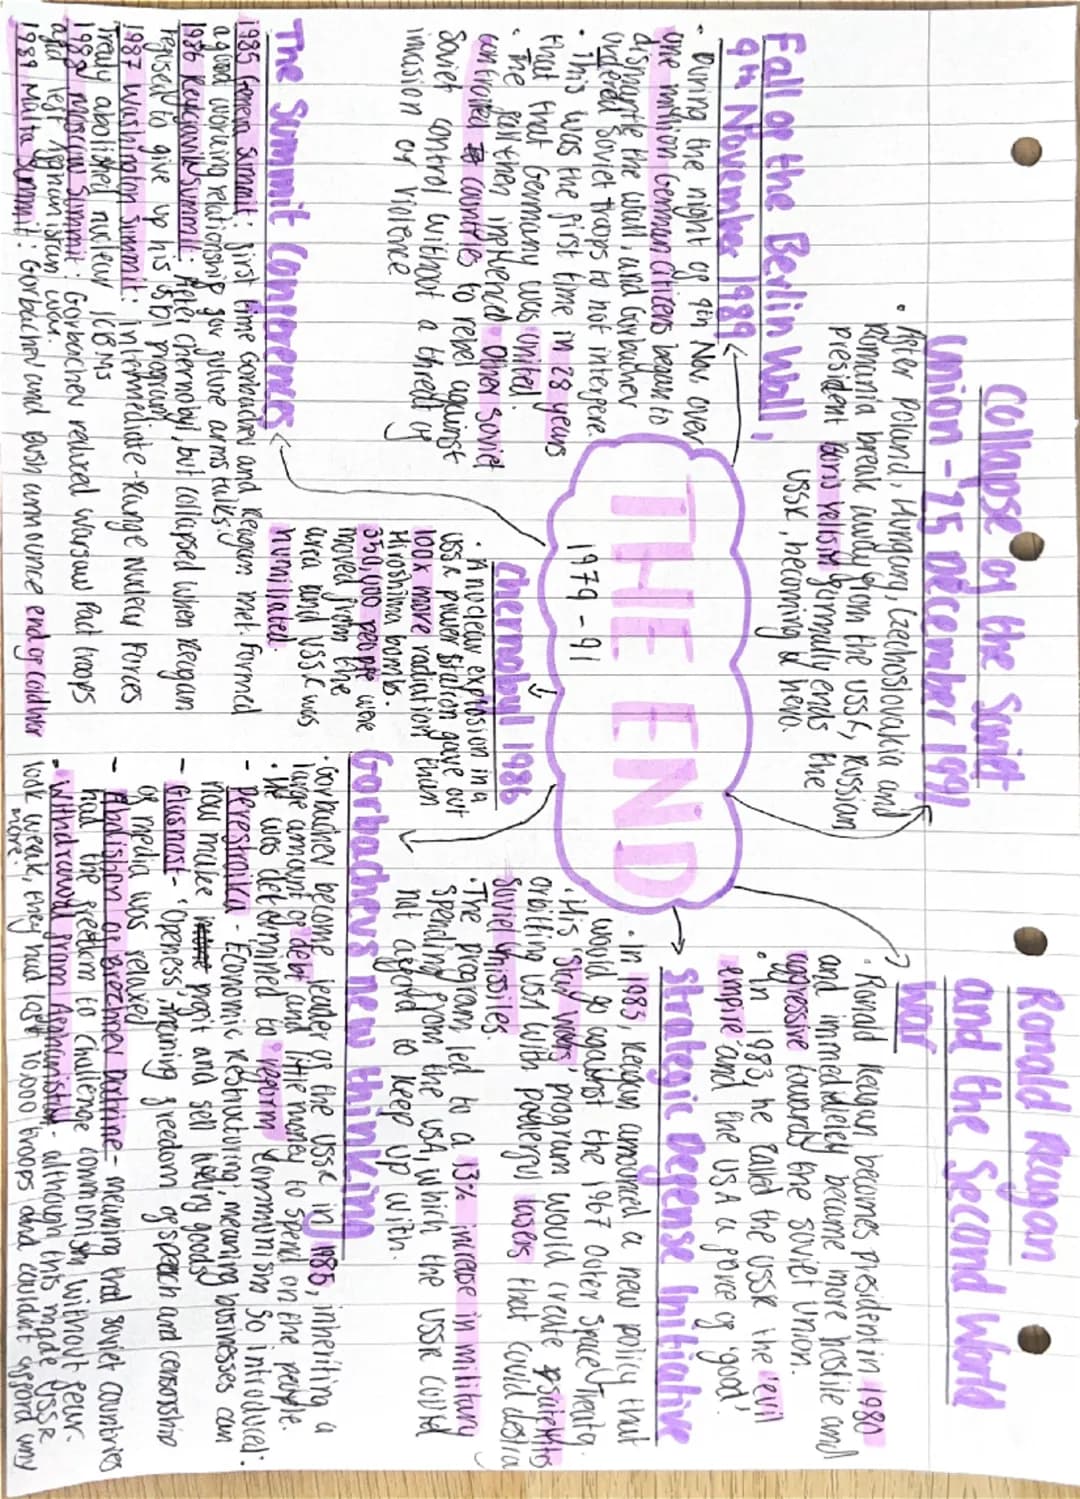 Collapse of the Soviet
Union - 25 December 1991
• After Poland, Hungary, Czechoslovakia and
Romania break away from the USSR, Russian
president Boris Yeltsin formally ends the
USSR, becoming a hero.
Ronald Reagan
and the Second World
War
• Ronald Reagan becomes president in 1980
and immediately became more hostile and
aggressive towards the Soviet Union.
• In 1983, he called the USSR the 'evil
empire' and the USA a force of 'good'.
Fall of the Berlin Wall,
9th November 1989
• During the night of 9th Nov, over
one million German citizens began to
dismantle the wall, and Gorbachev
ordered Soviet troops to not interfere.
• This was the first time in 28 years
that that Germany was united.
• The fall then influenced other soviet
controlled countries to revel against
Soviet control without a threat of
invasion or violence
THE END
1979 - 91
Strategic Defense Initiative
• In 1983, Reagan annouced a new policy that
would go against the 1967 outer space treaty.
• His 'Star Wars' program would create satellites
orbiting USA with powerful lasers that could destroy
Soviet missiles.
• The program led to a 13% increase in military
spending from the USA, which the USSR could
not afford to keep up with.
Chernobyl 1986
• A nuclear explosion in a
USSR power station gave out
100x more radiation than
Hiroshima bombs.
350,000 people were
moved from the
area and USSR was
humiliated.
The Summit Conferences
1985 Geneva Summit: first time Gorbachev and Reagan met. Formed
a good working relationship for future arms talks.
1986 Reykjavik Summit: After chernobyl, but collapsed when Reagan
refused to give up his SDI program
1987 Washington Summit: Intermediate-Range Nuclear Forces
Treaty abolished nuclear ICBMs
1988 Moscow Summit: Gorbachev reduced Warsaw Pact troops
and left Afghanistan war.
1989 Malta Summit: Gorbachev and Bush announce end of cold war
Gorbachevs new thinking
• Gorbachev become leader of the USSR in 1985, inheriting a
large amount of debt and little money to spend on the people.
• He was determined to 'reform' communism so introduced:
- Perestroika - Economic restructuring, meaning businesses can
now make profit and sell luxury goods
- Glasnost - 'Openess', meaning freedom of speech and censorship
of media was relaxed
- Abolishon of Brezhnev Doctrine - meaning that soviet countries
had the freedom to challenge communism without fear.
• Withdrawal from Afghanistan - although this made USSR
look weak, they had lost 10,000 troops and couldn't afford any
more.